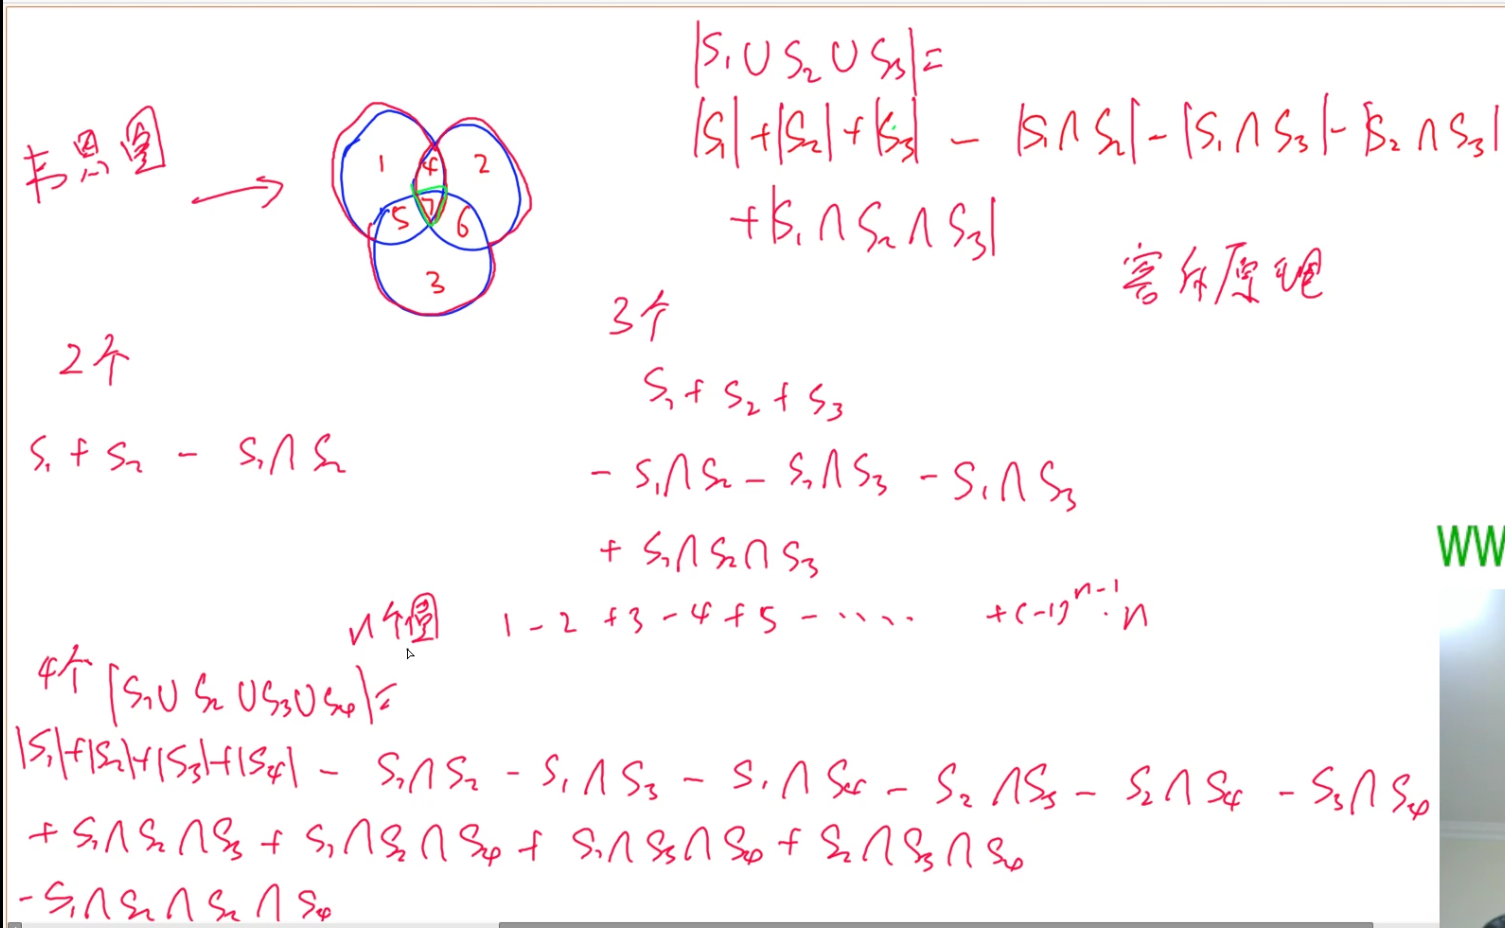 |S₁∪S₂∪S₃|=
|S₁|+|S₂|+|S₃| - |S₁∩S₂|-|S₁∩S₃|-|S₂∩S₃|
+|S₁∩S₂∩S₃|
韦恩图
1 4 2
5 7 6
3
容斥原理
2个
S₁+S₂ - S₁∩S₂
3个
S₁+S₂+S₃
- S₁∩S₂ - S₂∩S₃ - S₁∩S₃
+ S₁∩S₂∩S₃
n个圆 1-2+3-4+5-..... +(-1)ⁿ⁻¹·n
4个 |S₁∪S₂∪S₃∪S₄|=
|S₁|+|S₂|+|S₃|+|S₄| - S₁∩S₂ - S₁∩S₃ - S₁∩S₄ - S₂∩S₃ - S₂∩S₄ - S₃∩S₄
+ S₁∩S₂∩S₃ + S₁∩S₂∩S₄ + S₁∩S₃∩S₄ + S₂∩S₃∩S₄
- S₁∩S₂∩S₂∩S₄
WW